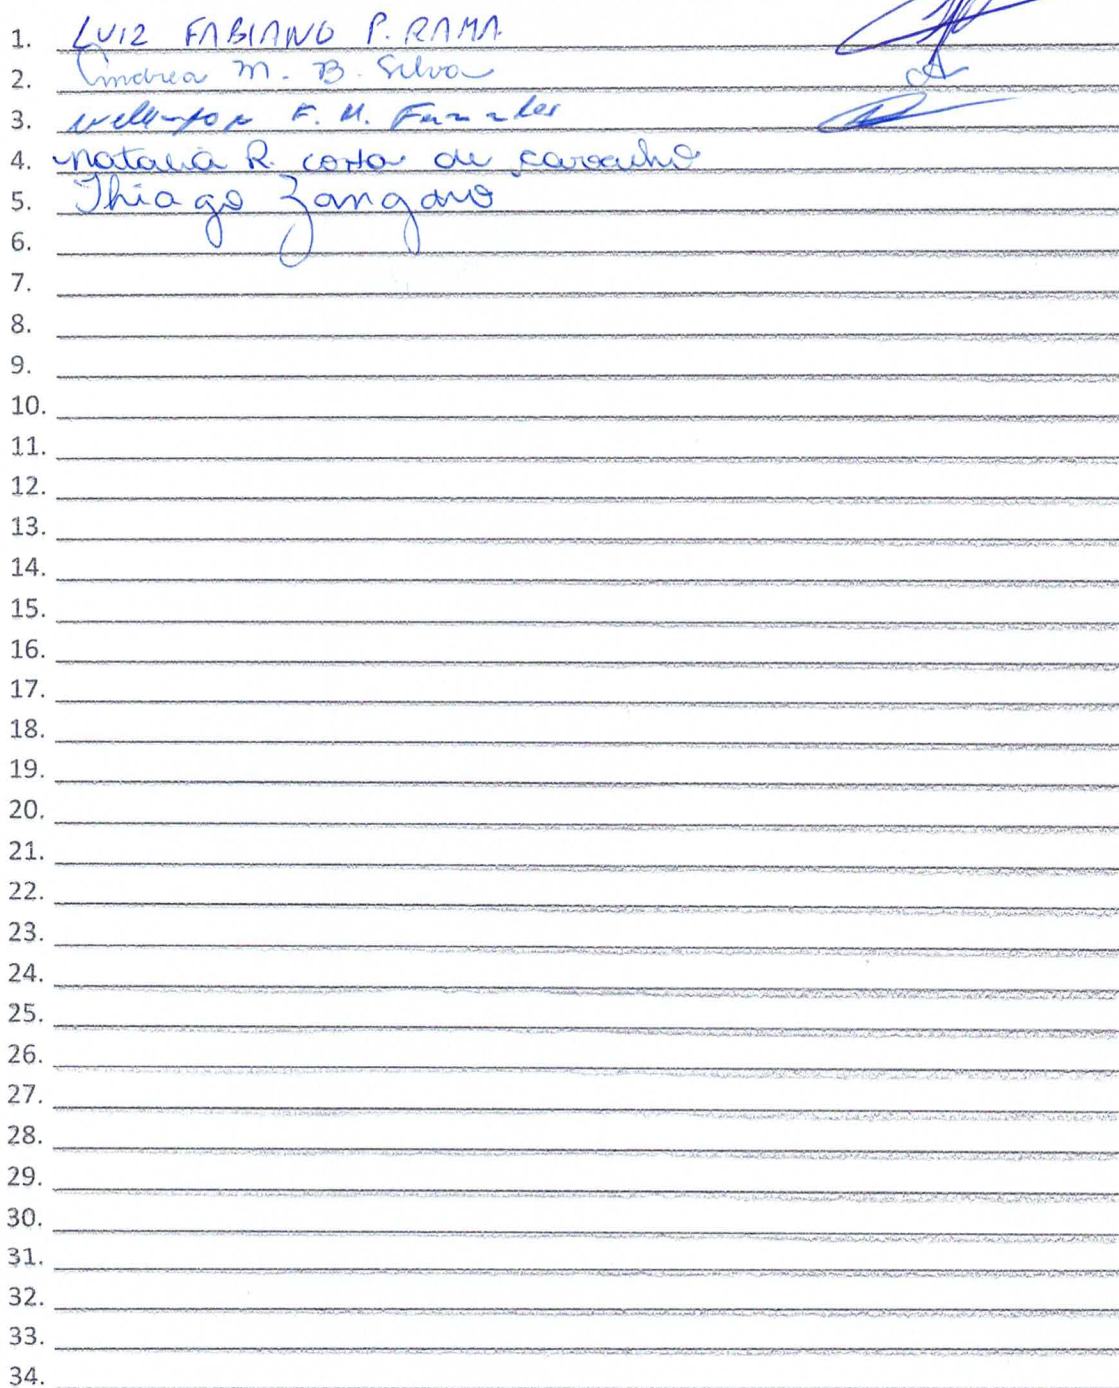 1. LUIZ FABIANO P. RAMA
2. Andrea M. B. Silva
3. Wellington F. M. Fernandes
4. Natalia R. Costa de Carvalho
5. Thiago Zangaro
6.
7.
8.
9.
10.
11.
12.
13.
14.
15.
16.
17.
18.
19.
20.
21.
22.
23.
24.
25.
26.
27.
28.
29.
30.
31.
32.
33.
34.